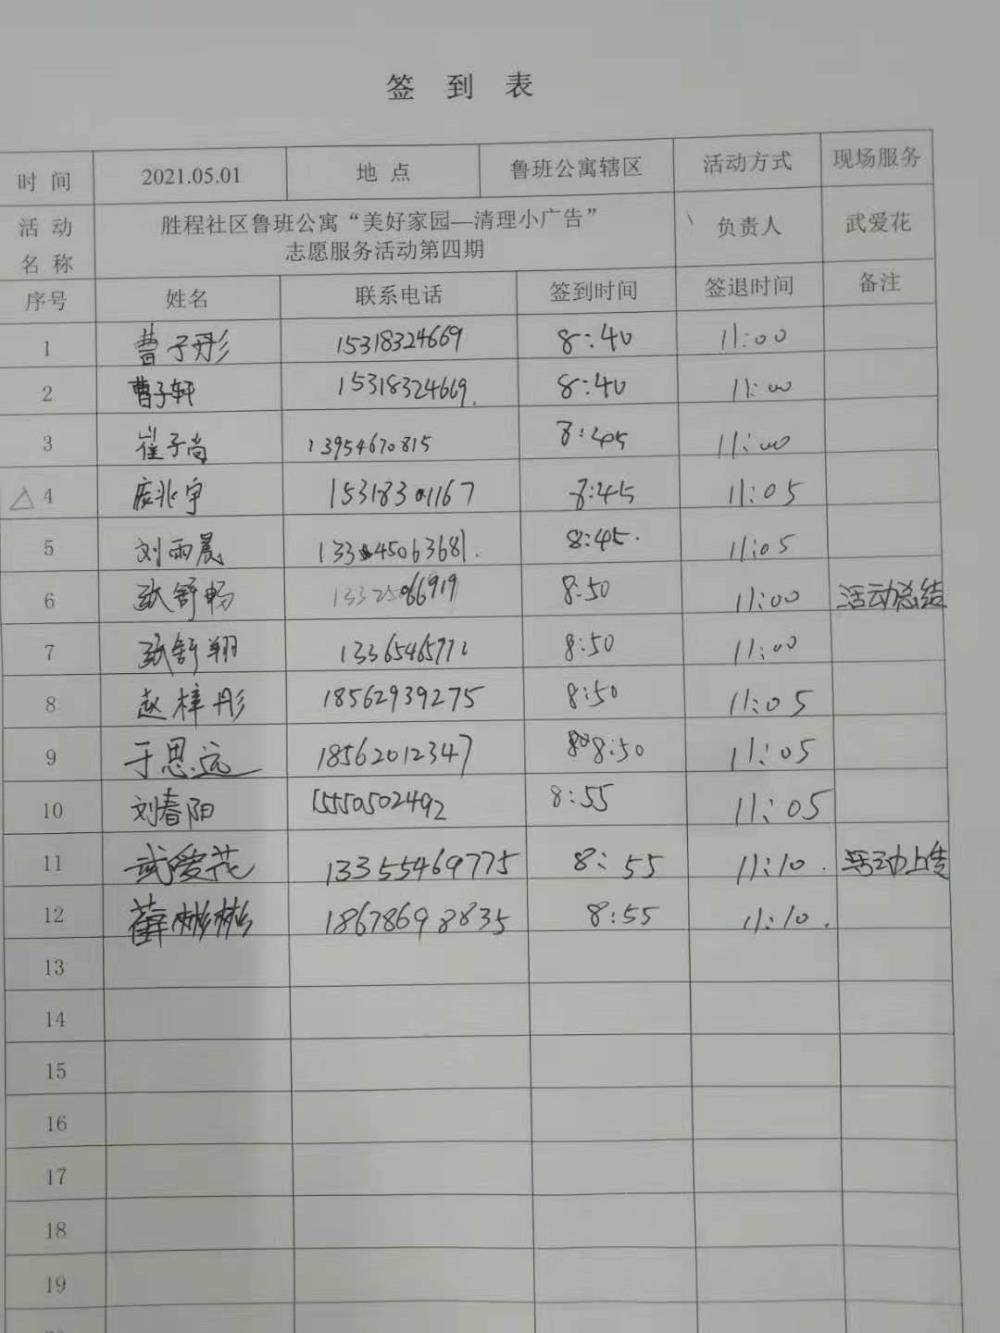 签 到 表
时 间 2021.05.01 地 点 鲁班公寓辖区 活动方式 现场服务
活 动 名 称 胜程社区鲁班公寓“美好家园—清理小广告” 负责人 武爱花
志愿服务活动第四期
序号 姓名 联系电话 签到时间 签退时间 备注
1 曹子彤 15318324669 8:40 11:00
2 曹子轩 15318324669. 8:40 11:00
3 崔子尚 13954670815 8:45 11:00
△ 4 庞兆宇 15318301167 8:45 11:05
5 刘雨晨 8:45. 11:05
6 张舒畅 13325066919 8:50 11:00 活动总结
7 张舒翔 8:50 11:00
8 赵梓彤 18562939275 8:50 11:05
9 于思远 18562012347 8:50 11:05
10 刘春阳 15550502492 8:55 11:05
11 武爱花 13355469775 8:55 11:10. 活动上传
12 薛彬彬 18678698835 8:55 11:10.
13
14
15
16
17
18
19